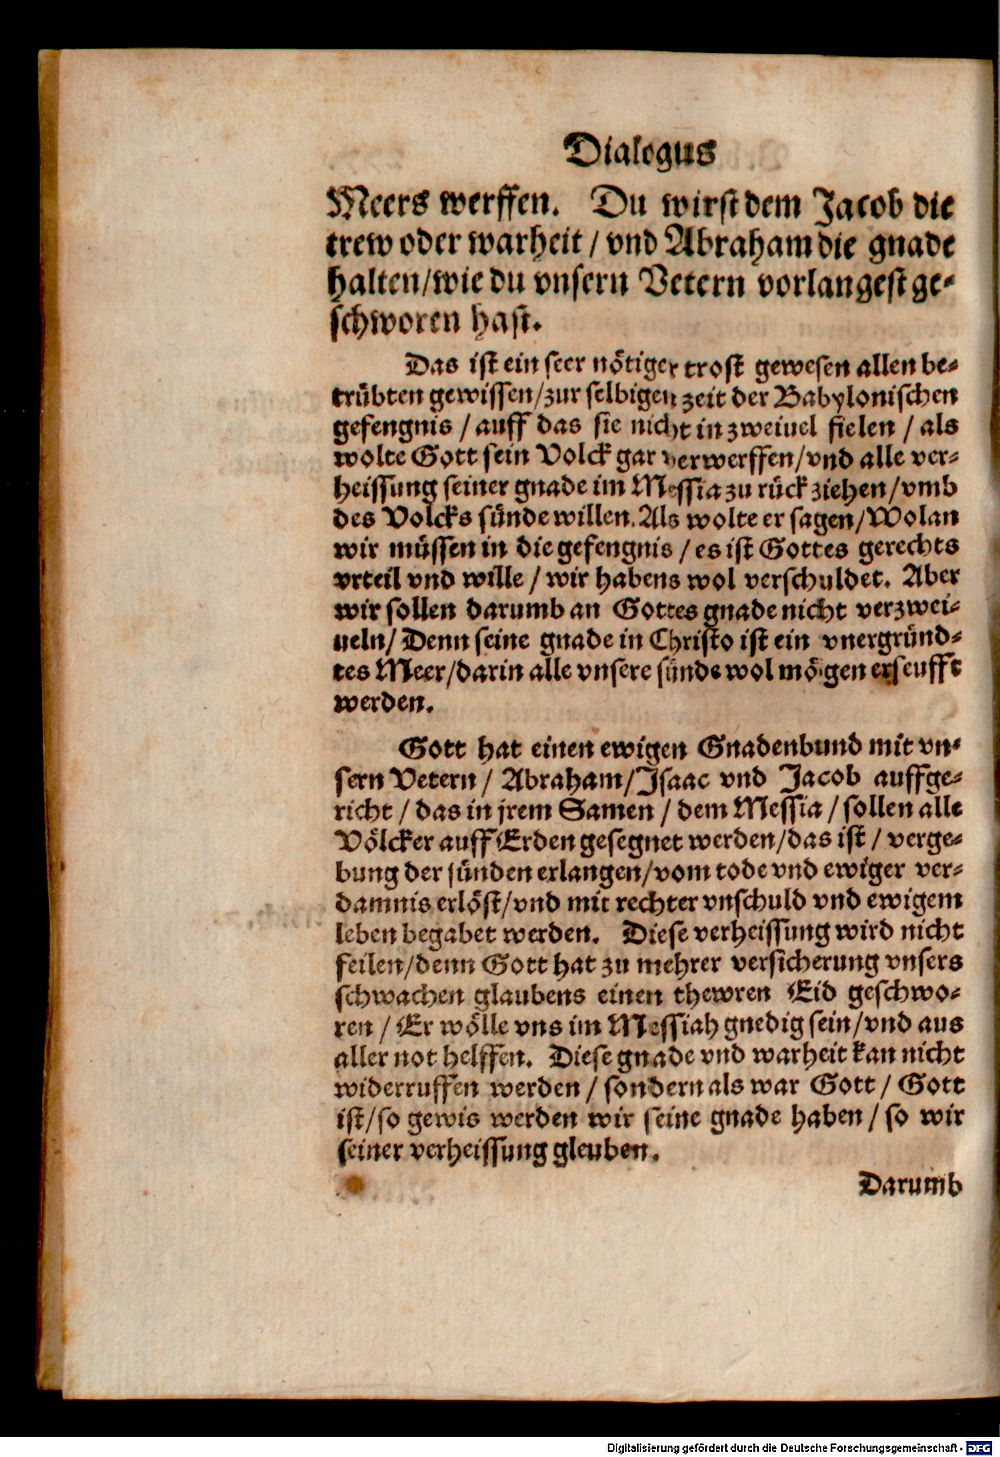 Dialogus
Meers werffen. Du wirst dem Jacob die
trew oder warheit / vnd Abraham die gnade
halten/wie du vnsern Vetern vorlangest ge-
schworen hast.
Das ist ein seer nötiger trost gewesen allen be-
trübten gewissen/zur selbigen zeit der Babylonischen
gefengnis / auff das sie nicht in zweiuel fielen / als
wolte Gott sein Volck gar verwerffen/vnd alle ver-
heissung seiner gnade im Messia zu rück ziehen/vmb
des Volcks sünde willen. Als wolte er sagen/Wolan
wir müssen in die gefengnis / es ist Gottes gerechts
vrteil vnd wille / wir habens wol verschuldet. Aber
wir sollen darumb an Gottes gnade nicht verzwei-
ueln/ Denn seine gnade in Christo ist ein vnergründ-
tes Meer/darin alle vnsere sünde wol mögen erseufft
werden.
Gott hat einen ewigen Gnadenbund mit vn-
sern Vetern / Abraham/Isaac vnd Jacob auffge-
richt / das in jrem Samen / dem Messia / sollen alle
Völcker auff Erden gesegnet werden/das ist / verge-
bung der sünden erlangen/vom tode vnd ewiger ver-
damnis erlöst/vnd mit rechter vnschuld vnd ewigem
leben begabet werden. Diese verheissung wird nicht
feilen/denn Gott hat zu mehrer versicherung vnsers
schwachen glaubens einen thewren Eid geschwo-
ren / Er wölle vns im Messiah gnedig sein/vnd aus
aller not helffen. Diese gnade vnd warheit kan nicht
widerruffen werden / sondern als war Gott / Gott
ist/so gewis werden wir seine gnade haben / so wir
seiner verheissung gleuben.
Darumb
Digitalisierung gefördert durch die Deutsche Forschungsgemeinschaft - DFG